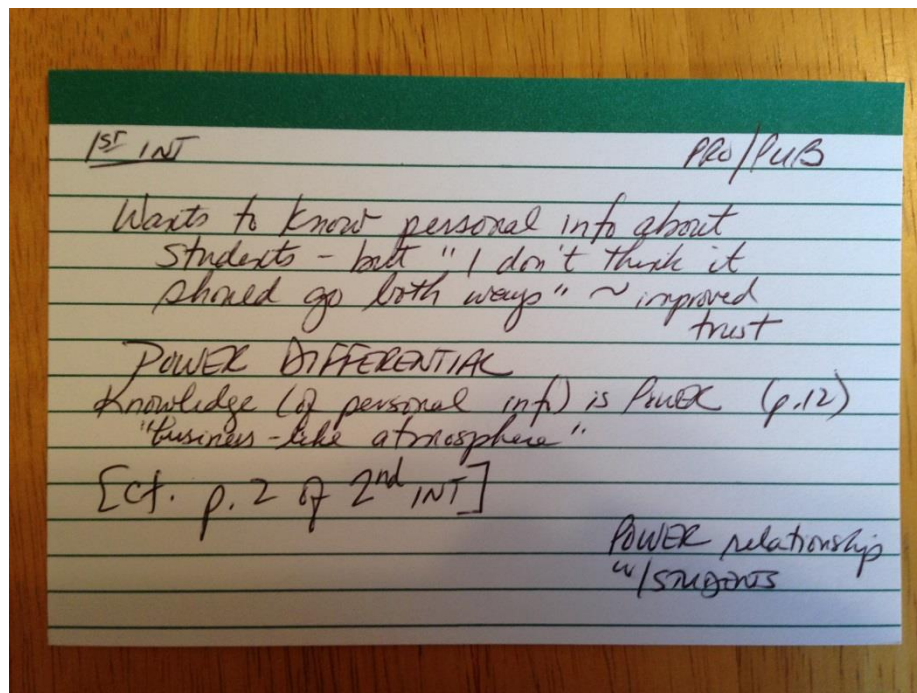 1ST INT PRO/PUB
Wants to know personal info about
students - but "I don't think it
should go both ways" ~ improved
trust
POWER DIFFERENTIAL
Knowledge (of personal info) is POWER (p.12)
"business-like atmosphere"
[cf. p.2 of 2nd INT]
POWER relationship
w/STUDENTS